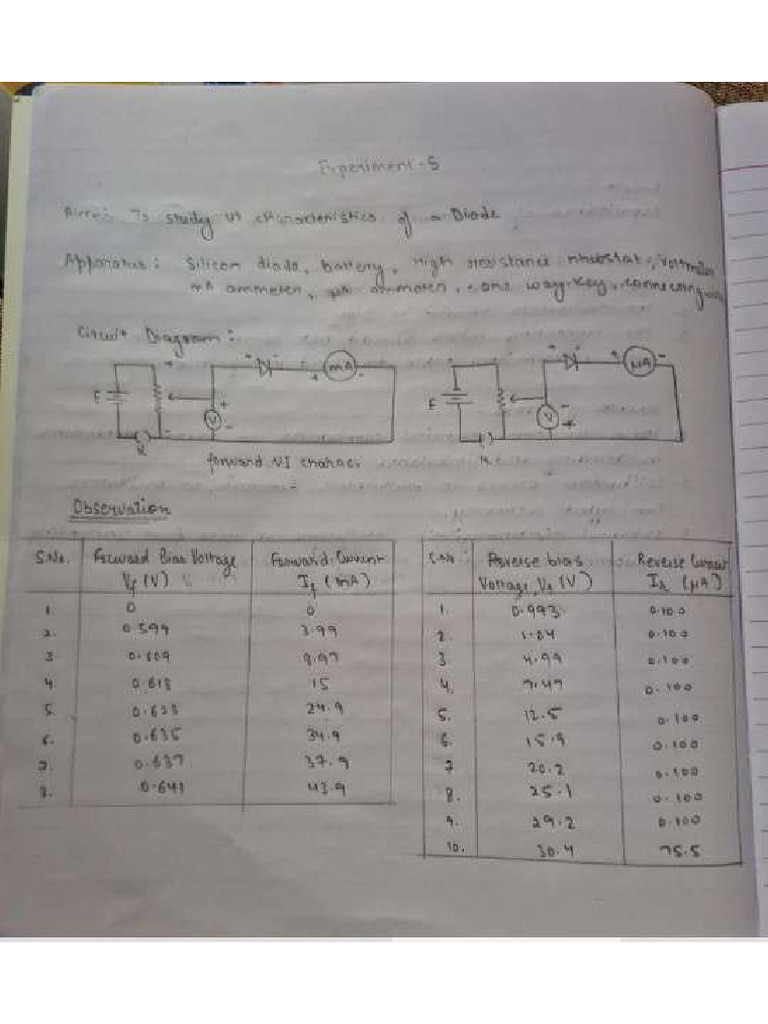 Experiment-5
Aim: To study VI characteristics of a Diode
Apparatus: Silicon diode, battery, High resistance rheostat, voltmeter
mA ammeter, μA ammeter, one way key, connecting wire
Circuit Diagram:
+ - mA + - E + V - K
+ - μA + - E - V + K
forward VI charac.
Observation
S.No. Forward Bias Voltage Forward Current
Vf (V) If (mA)
1. 0 0
2. 0.599 3.99
3. 0.609 9.97
4. 0.618 15
5. 0.628 24.9
6. 0.635 34.9
7. 0.637 37.9
8. 0.641 43.9
S.No. Reverse bias Reverse Current
Voltage, VR (V) IR (μA)
1. 0.993 0.100
2. 1.04 0.100
3. 4.99 0.100
4. 7.47 0.100
5. 12.5 0.100
6. 15.9 0.100
7 20.2 0.100
8. 25.1 0.100
9. 29.2 0.100
10. 30.4 75.5